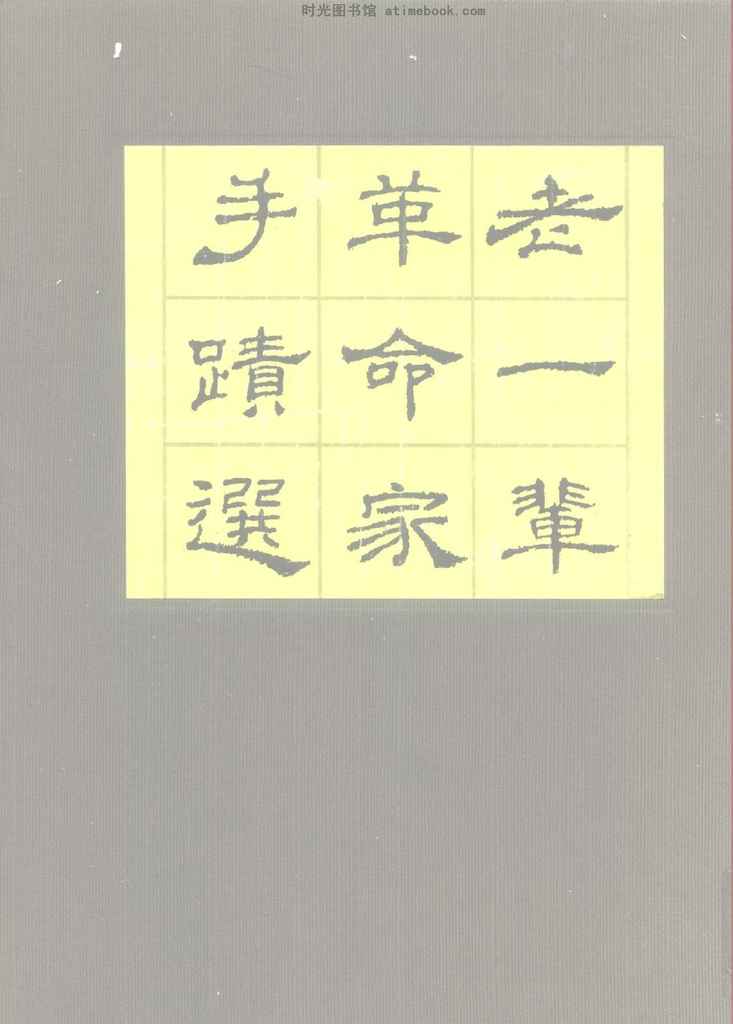 时光图书馆 atimebook.com
老一輩
革命家
手蹟選